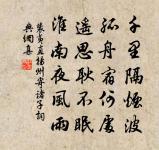 千里隔煙波
孤舟宿何處
遙思耿不眠
淮南夜風雨
裴夷直揚州寄諸子詞
典網集